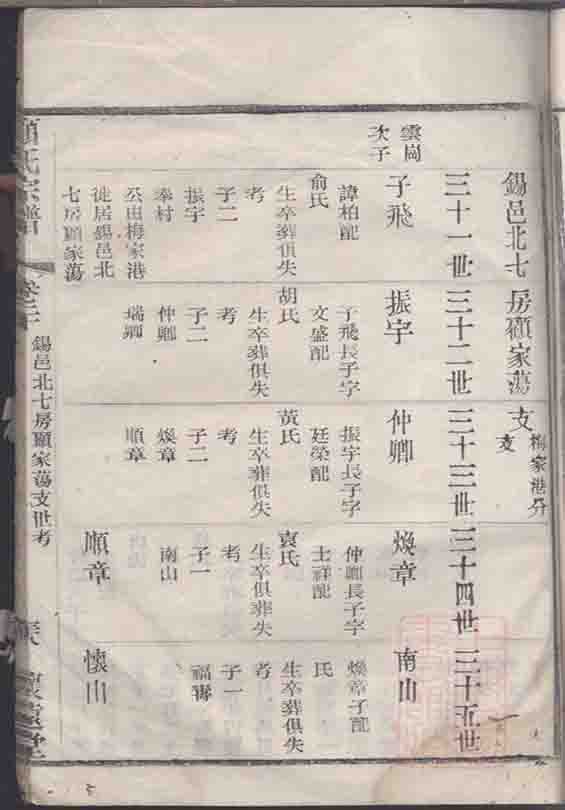 錫邑北七房顧家蕩支
梅家港分
支
三十一世
三十二世
三十三世
三十四世
三十五世
雲岡
次子
子飛
諱柏配
俞氏
生卒葬俱失
考
子二
振宇
奉村
公由梅家港
徙居錫邑北
七房顧家蕩
振宇
子飛長子字
文盛配
胡氏
生卒葬俱失
考
子二
仲卿
瑞卿
仲卿
振宇長子字
廷榮配
黃氏
生卒葬俱失
考
子二
煥章
順章
煥章
仲卿長子字
士祥配
袁氏
生卒俱葬失
考
子一
南山
順章
南山
煥章子配
氏
生卒葬俱失
考
子一
福壽
懷山
氏宗譜
卷二十
錫邑北七房顧家蕩支世考